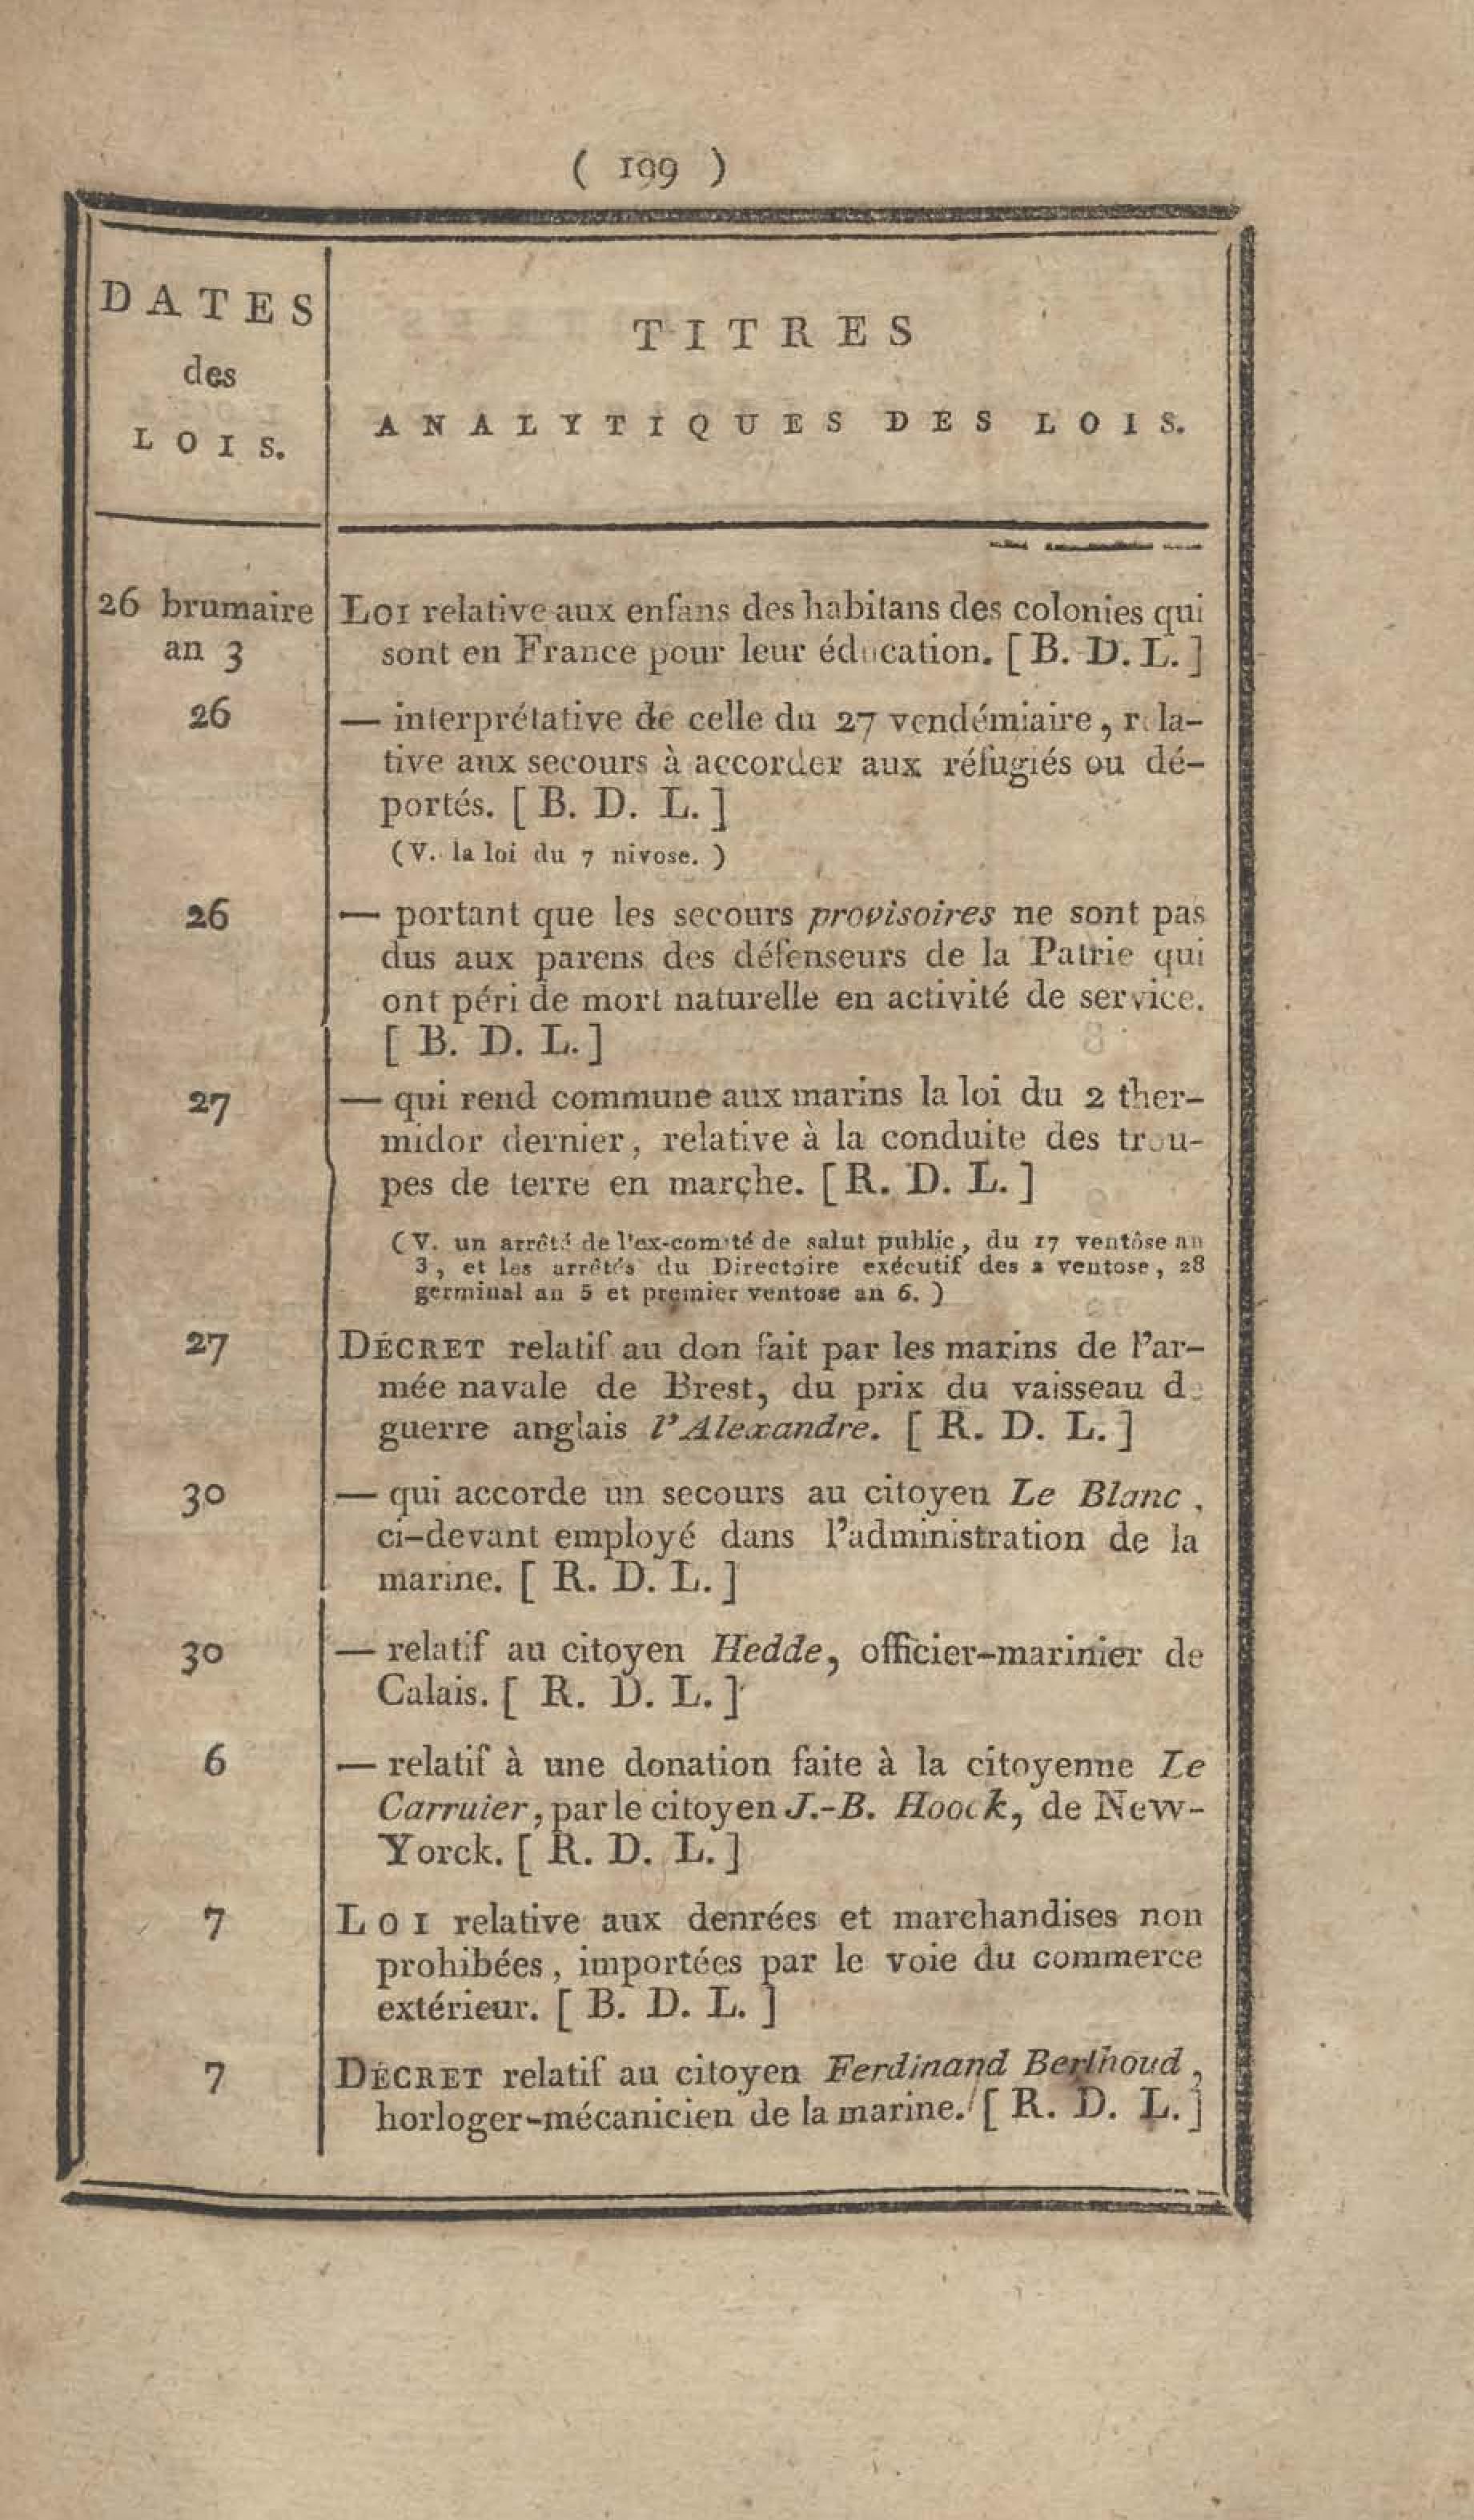 ( 199 )
DATES
des
LOIS.
TITRES
ANALYTIQUES DES LOIS.
26 brumaire
an 3
LOI relative aux enfans des habitans des colonies qui
sont en France pour leur éducation. [ B. D. L. ]
26
— interprétative de celle du 27 vendémiaire, rela-
tive aux secours à accorder aux réfugiés ou dé-
portés. [ B. D. L. ]
(V. la loi du 7 nivose. )
26
— portant que les secours provisoires ne sont pas
dus aux parens des défenseurs de la Patrie qui
ont péri de mort naturelle en activité de service.
[ B. D. L. ]
27
— qui rend commune aux marins la loi du 2 ther-
midor dernier, relative à la conduite des trou-
pes de terre en marche. [ R. D. L. ]
(V. un arrêté de l'ex-comité de salut public, du 17 ventôse an
3, et les arrêtés du Directoire exécutif des 2 ventose, 28
germinal an 5 et premier ventose an 6. )
27
DÉCRET relatif au don fait par les marins de l'ar-
mée navale de Brest, du prix du vaisseau de
guerre anglais l'Alexandre. [ R. D. L. ]
30
— qui accorde un secours au citoyen Le Blanc,
ci-devant employé dans l'administration de la
marine. [ R. D. L. ]
30
— relatif au citoyen Hedde, officier-marinier de
Calais. [ R. D. L. ]
6
— relatif à une donation faite à la citoyenne Le
Carruier, par le citoyen J.-B. Hoock, de New-
Yorck. [ R. D. L. ]
7
LOI relative aux denrées et marchandises non
prohibées, importées par le voie du commerce
extérieur. [ B. D. L. ]
7
DÉCRET relatif au citoyen Ferdinand Berthoud,
horloger-mécanicien de la marine. [ R. D. L. ]